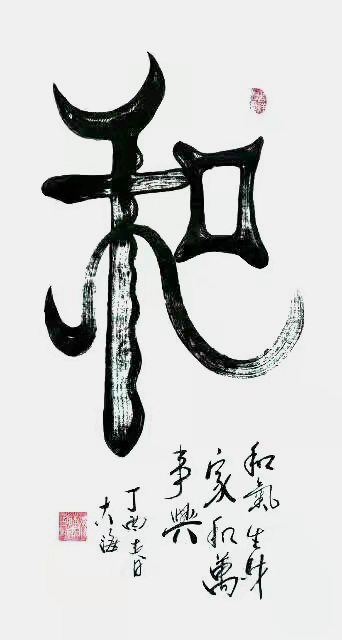 和
和氣生财
家和萬
事興
丁酉春日
大海